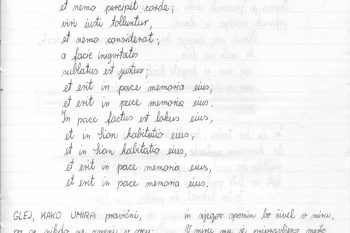 et nemo percipit corde;
viri iusti tolluntur,
et nemo considerat;
a facie iniquitatis
sublatus est justus;
et erit in pace memoria eius,
et erit in pace memoria eius.
In pace factus est lokus eius,
et in Sion habitatio eius,
et in Sion habitatio eius,
et erit in pace memoria eius,
et erit in pace memoria eius.
GLEJ, KAKO UMIRA pravični,
in njegov spomin bo živel v miru.